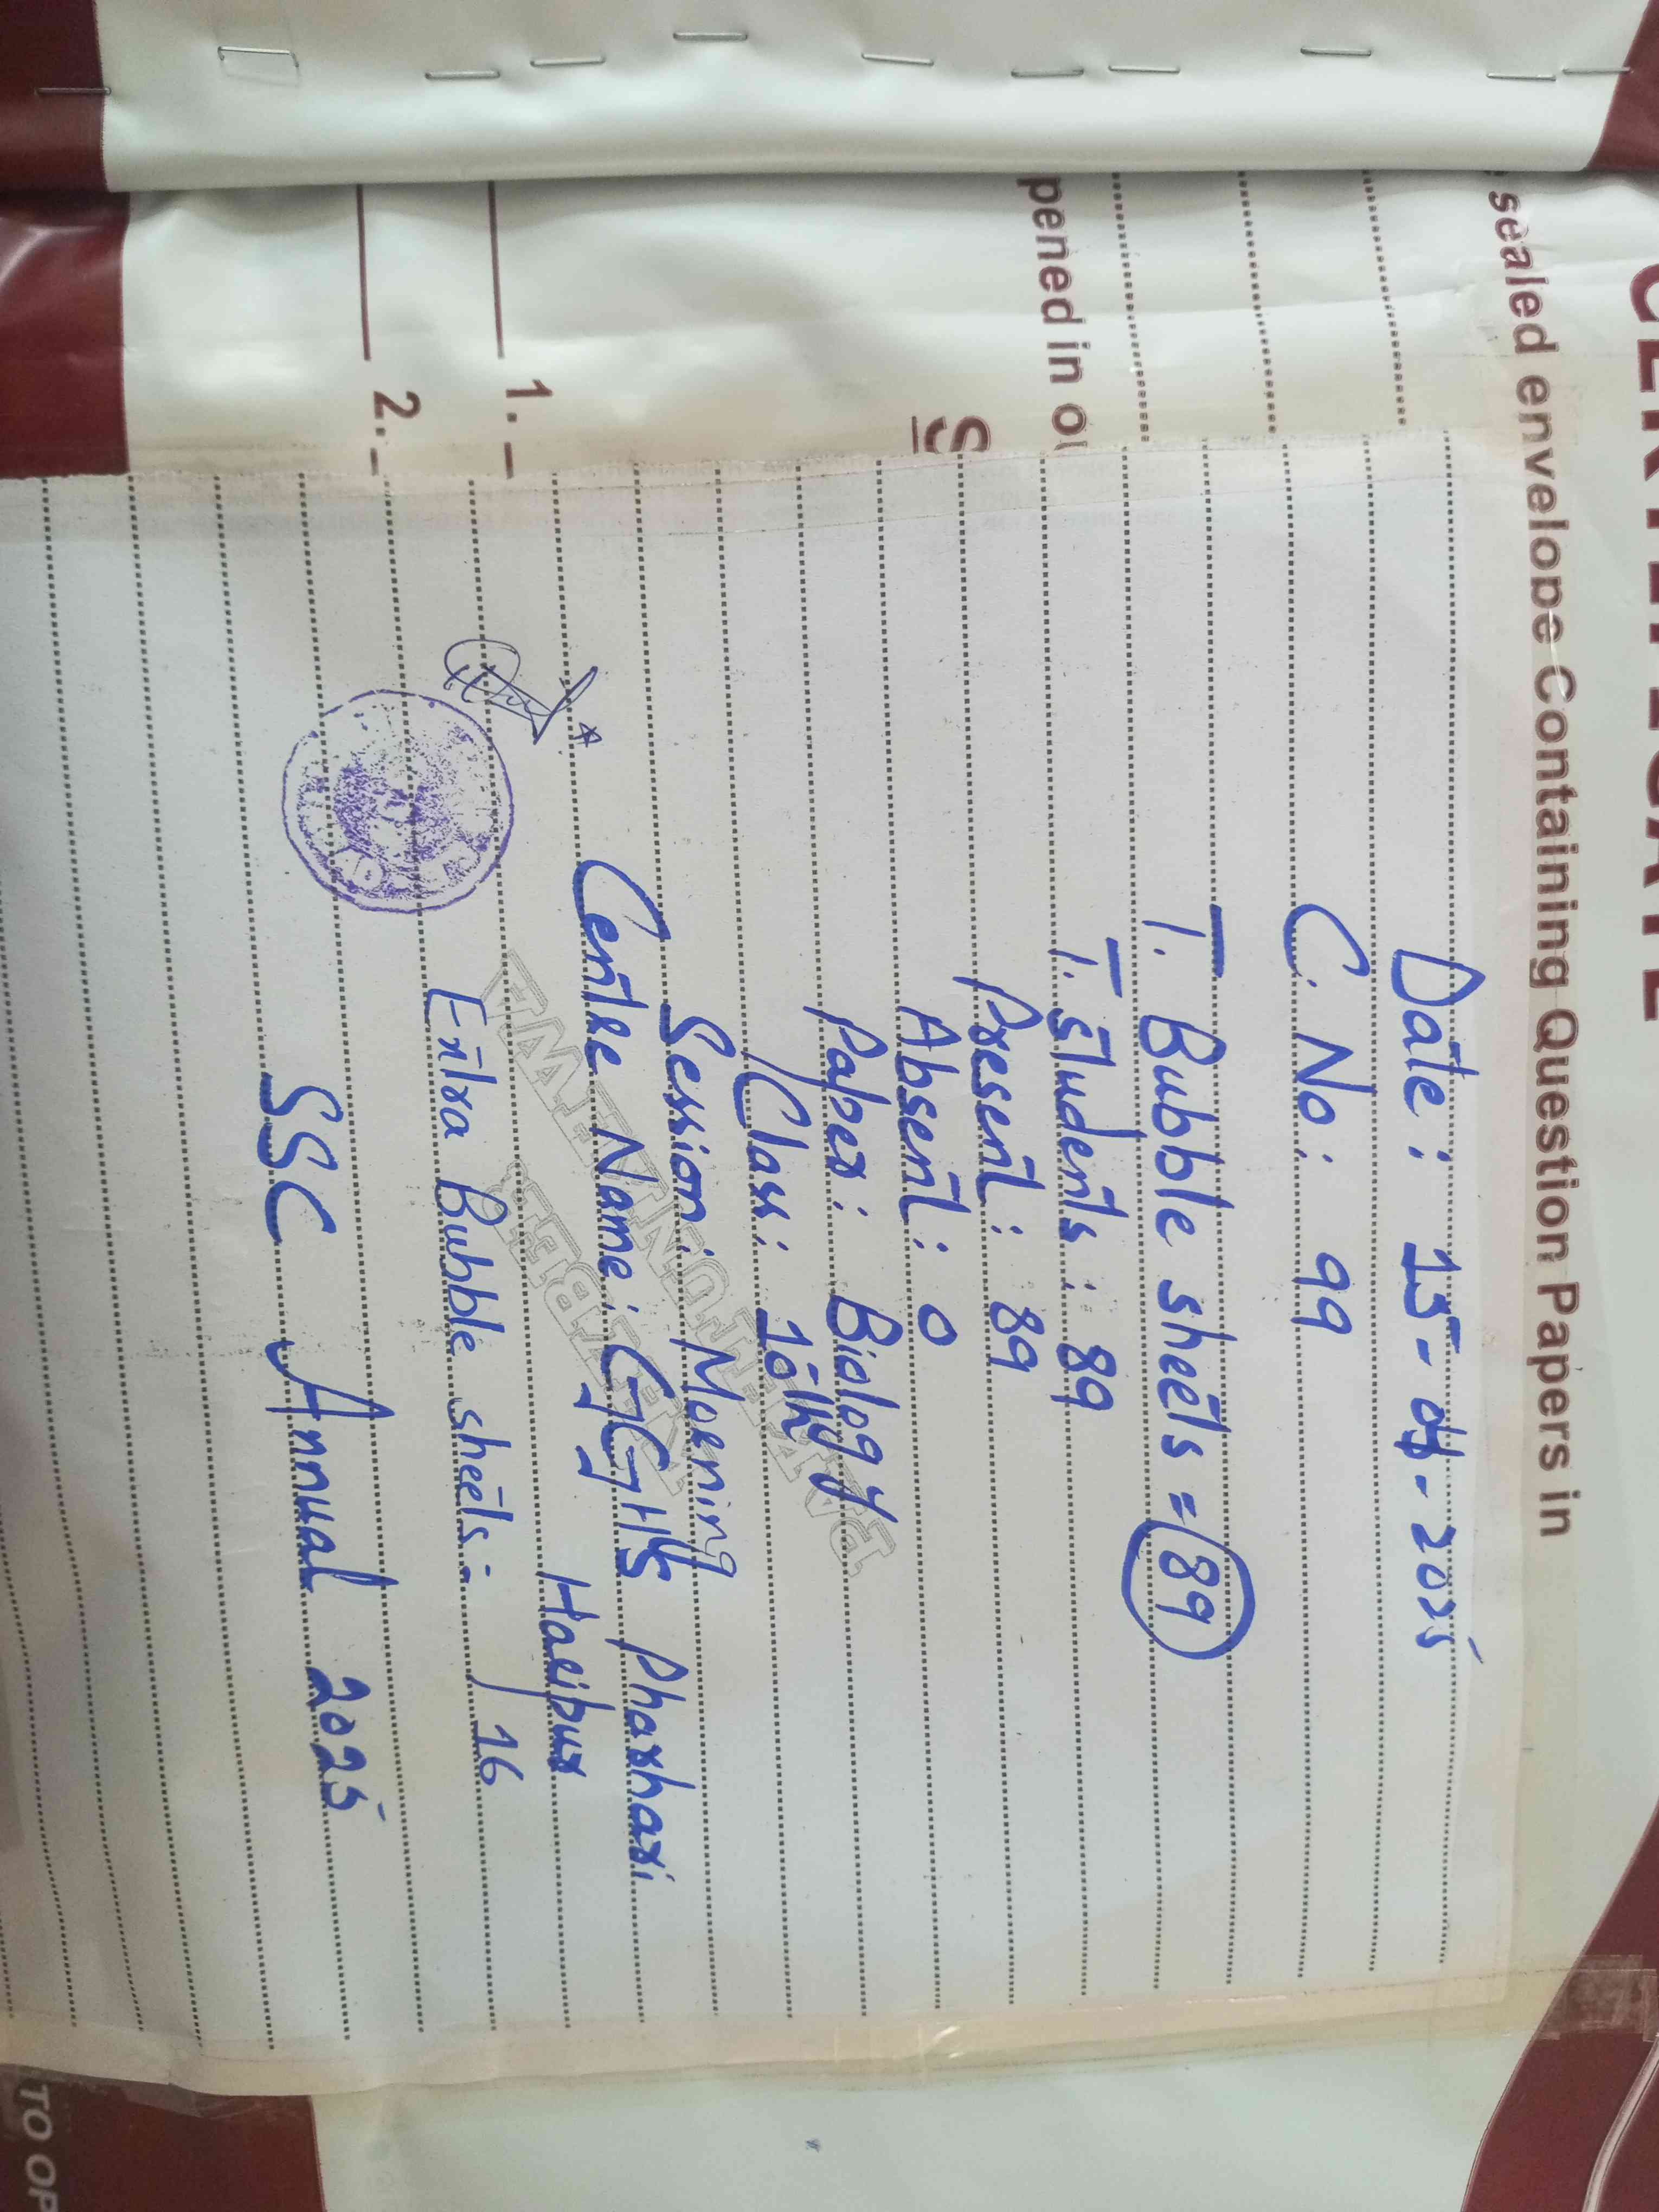 sealed envelope Containing Question Papers in
pened in
1.
2.
Date: 15-04-2025
C. No: 99
T. Bubble sheets = 89
T. students: 89
Present: 89
Absent: 0
Paper: Biology
Class: 10th
Session: Morning
Centre Name: GGHS Pharhari
Haripur
Extra Bubble sheets: 16
SSC Annual 2025
TO OP